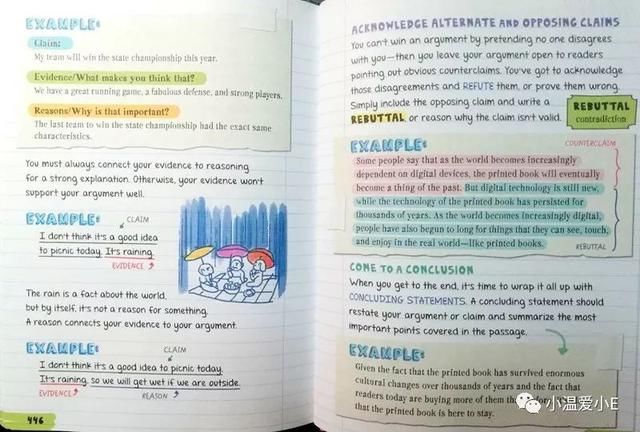 EXAMPLE:
Claim:
My team will win the state championship this year.
Evidence/What makes you think that?
We have a great running game, a fabulous defense, and strong players.
Reasons/Why is that important?
The last team to win the state championship had the exact same
characteristics.
You must always connect your evidence to reasoning
for a strong explanation. Otherwise, your evidence won't
support your argument well.
EXAMPLE:
CLAIM
I don't think it's a good idea
to picnic today. It's raining.
EVIDENCE
The rain is a fact about the world,
but by itself, it's not a reason for something.
A reason connects your evidence to your argument.
EXAMPLE:
CLAIM
I don't think it's a good idea to picnic today.
It's raining, so we will get wet if we are outside.
EVIDENCE
REASON
446
ACKNOWLEDGE ALTERNATE AND OPPOSING CLAIMS
You can't win an argument by pretending no one disagrees
with you—then you leave your argument open to readers
pointing out obvious counterclaims. You've got to acknowledge
those disagreements and REFUTE them, or prove them wrong.
Simply include the opposing claim and write a
REBUTTAL, or reason why the claim isn't valid.
REBUTTAL
contradiction
EXAMPLE:
COUNTERCLAIM
Some people say that as the world becomes increasingly
dependent on digital devices, the printed book will eventually
become a thing of the past. But digital technology is still new,
while the technology of the printed book has persisted for
thousands of years. As the world becomes increasingly digital,
people have also begun to long for things that they can see, touch,
and enjoy in the real world—like printed books.
REBUTTAL
COME TO A CONCLUSION
When you get to the end, it's time to wrap it all up with
CONCLUDING STATEMENTS. A concluding statement should
restate your argument or claim and summarize the most
important points covered in the passage.
EXAMPLE:
Given the fact that the printed book has survived enormous
cultural changes over thousands of years and the fact that
readers today are buying more of them
that the printed book is here to stay.
小温爱小E